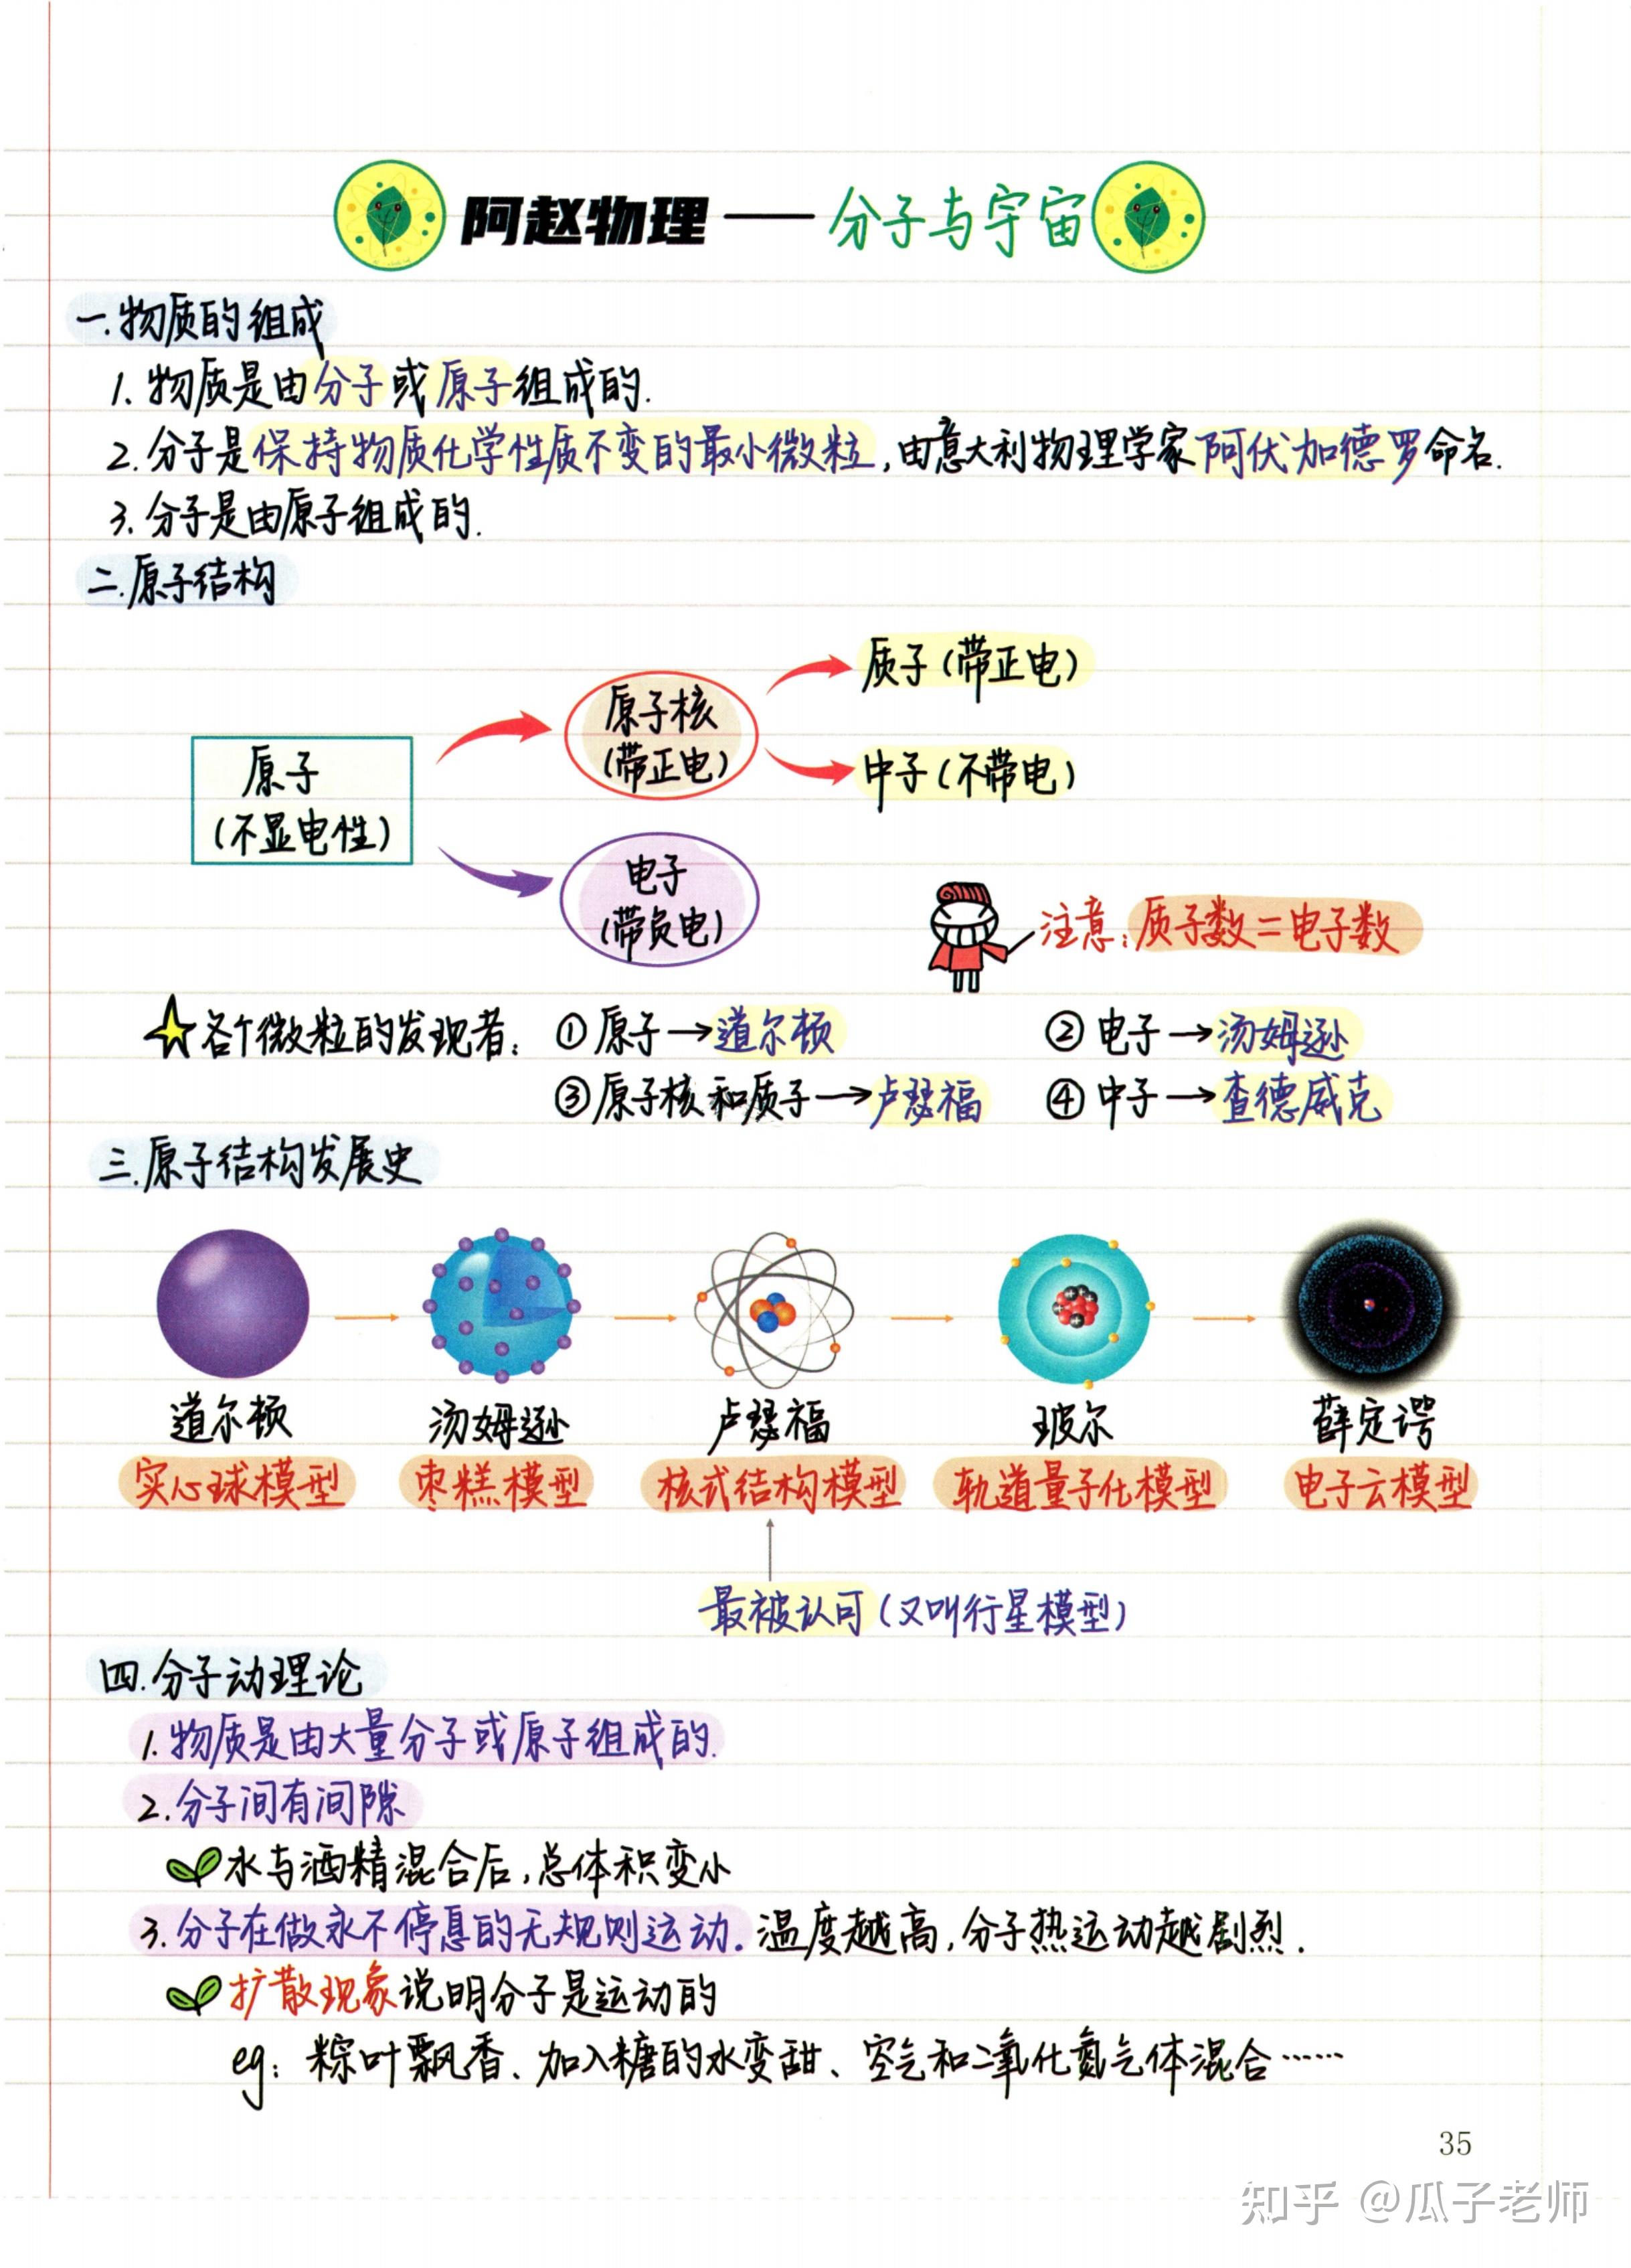 阿赵物理——分子与宇宙
一.物质的组成
1.物质是由分子或原子组成的.
2.分子是保持物质化学性质不变的最小微粒,由意大利物理学家阿伏加德罗命名.
3.分子是由原子组成的.
二.原子结构
原子
(不显电性)
原子核
(带正电)
质子(带正电)
中子(不带电)
电子
(带负电)
注意:质子数=电子数
各个微粒的发现者: ①原子→道尔顿 ②电子→汤姆逊
③原子核和质子→卢瑟福 ④中子→查德威克
三.原子结构发展史
道尔顿 汤姆逊 卢瑟福 玻尔 薛定谔
实心球模型 枣糕模型 核式结构模型 轨道量子化模型 电子云模型
最被认可(又叫行星模型)
四.分子动理论
1.物质是由大量分子或原子组成的.
2.分子间有间隙
水与酒精混合后,总体积变小
3.分子在做永不停息的无规则运动.温度越高,分子热运动越剧烈.
扩散现象说明分子是运动的
eg:粽叶飘香、加入糖的水变甜、空气和二氧化氮气体混合……
35
知乎 @瓜子老师